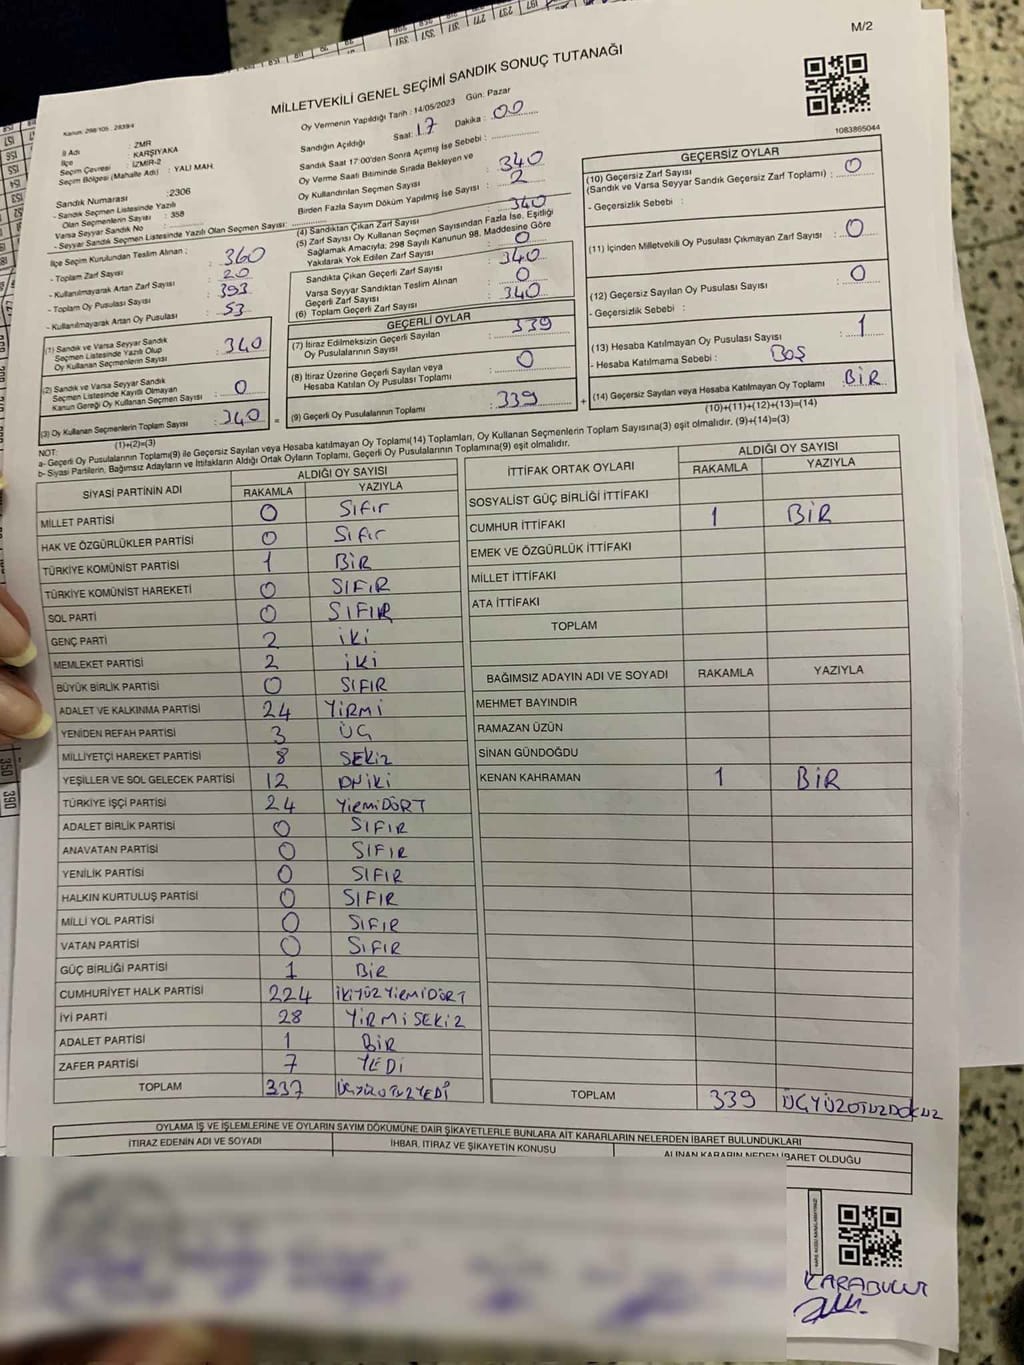 M/2
MİLLETVEKİLİ GENEL SEÇİMİ SANDIK SONUÇ TUTANAĞI
1083865044
Oy Vermenin Yapıldığı Tarih : 14/05/2023 Gün: Pazar
Sandığın Açıldığı Saat: 17 Dakika : 00
Sandık Saat 17:00'den Sonra Açılmış İse Sebebi :
Oy Verme Saati Bitiminde Sırada Bekleyen ve
Oy Kullandırılan Seçmen Sayısı : 340
Birden Fazla Sayım Döküm Yapılmış İse Sayısı : 2
İl Adı : ZMR
İlçe : KARŞIYAKA
Seçim Çevresi : İZMİR-2
Seçim Bölgesi (Mahalle Adı) : YALI MAH.
Sandık Numarası :2306
- Sandık Seçmen Listesinde Yazılı
Olan Seçmenlerin Sayısı : 358
Varsa Seyyar Sandık No :
- Seyyar Sandık Seçmen Listesinde Yazılı Olan Seçmen Sayısı:
İlçe Seçim Kurulundan Teslim Alınan ;
- Toplam Zarf Sayısı : 360
- Kullanılmayarak Artan Zarf Sayısı : 20
- Toplam Oy Pusulası Sayısı : 393
- Kullanılmayarak Artan Oy Pusulası : 53
(1) Sandık ve Varsa Seyyar Sandık
Seçmen Listesinde Yazılı Olup
Oy Kullanan Seçmenlerin Sayısı : 340
(2) Sandık ve Varsa Seyyar Sandık
Seçmen Listesinde Kayıtlı Olmayan
Kanun Gereği Oy Kullanan Seçmen Sayısı : 0
(3) Oy Kullanan Seçmenlerin Toplam Sayısı : 340
(1)+(2)=(3)
(4) Sandıktan Çıkan Zarf Sayısı : 340
(5) Zarf Sayısı Oy Kullanan Seçmen Sayısından Fazla İse, Eşitliği
Sağlamak Amacıyla; 298 Sayılı Kanunun 98. Maddesine Göre
Yakılarak Yok Edilen Zarf Sayısı : 0
Sandıkta Çıkan Geçerli Zarf Sayısı : 340
Varsa Seyyar Sandıktan Teslim Alınan
Geçerli Zarf Sayısı : 0
(6) Toplam Geçerli Zarf Sayısı : 340
GEÇERLİ OYLAR
(7) İtiraz Edilmeksizin Geçerli Sayılan
Oy Pusulalarının Sayısı : 339
(8) İtiraz Üzerine Geçerli Sayılan veya
Hesaba Katılan Oy Pusulası Toplamı : 0
(9) Geçerli Oy Pusulalarının Toplamı : 339
GEÇERSİZ OYLAR
(10) Geçersiz Zarf Sayısı
(Sandık ve Varsa Seyyar Sandık Geçersiz Zarf Toplamı) : 0
- Geçersizlik Sebebi :
(11) İçinden Milletvekili Oy Pusulası Çıkmayan Zarf Sayısı : 0
(12) Geçersiz Sayılan Oy Pusulası Sayısı : 0
- Geçersizlik Sebebi :
(13) Hesaba Katılmayan Oy Pusulası Sayısı : 1
- Hesaba Katılmama Sebebi : BOŞ
(14) Geçersiz Sayılan veya Hesaba Katılmayan Oy Toplamı : BİR
(10)+(11)+(12)+(13)=(14)
NOT:
a- Geçerli Oy Pusulalarının Toplamı(9) ile Geçersiz Sayılan veya Hesaba katılmayan Oy Toplamı(14) Toplamları, Oy Kullanan Seçmenlerin Toplam Sayısına(3) eşit olmalıdır. (9)+(14)=(3)
b- Siyasi Partilerin, Bağımsız Adayların ve İttifakların Aldığı Ortak Oyların Toplamı, Geçerli Oy Pusulalarının Toplamına(9) eşit olmalıdır.
SİYASİ PARTİNİN ADI ALDIĞI OY SAYISI
RAKAMLA YAZIYLA
MİLLET PARTİSİ 0 Sıfır
HAK VE ÖZGÜRLÜKLER PARTİSİ 0 Sıfır
TÜRKİYE KOMÜNİST PARTİSİ 1 BİR
TÜRKİYE KOMÜNİST HAREKETİ 0 SIFIR
SOL PARTİ 0 SIFIR
GENÇ PARTİ 2 İKİ
MEMLEKET PARTİSİ 2 İKİ
BÜYÜK BİRLİK PARTİSİ 0 SIFIR
ADALET VE KALKINMA PARTİSİ 24 YİRMİ
YENİDEN REFAH PARTİSİ 3 ÜÇ
MİLLİYETÇİ HAREKET PARTİSİ 8 SEKİZ
YEŞİLLER VE SOL GELECEK PARTİSİ 12 ONİKİ
TÜRKİYE İŞÇİ PARTİSİ 24 YİRMİDÖRT
ADALET BİRLİK PARTİSİ 0 SIFIR
ANAVATAN PARTİSİ 0 SIFIR
YENİLİK PARTİSİ 0 SIFIR
HALKIN KURTULUŞ PARTİSİ 0 SIFIR
MİLLİ YOL PARTİSİ 0 SIFIR
VATAN PARTİSİ 0 SIFIR
GÜÇ BİRLİĞİ PARTİSİ 1 BİR
CUMHURİYET HALK PARTİSİ 224 İKİYÜZYİRMİDÖRT
İYİ PARTİ 28 YİRMİSEKİZ
ADALET PARTİSİ 1 BİR
ZAFER PARTİSİ 7 YEDİ
TOPLAM 337 ÜÇYÜZOTUZYEDİ
İTTİFAK ORTAK OYLARI ALDIĞI OY SAYISI
RAKAMLA YAZIYLA
SOSYALİST GÜÇ BİRLİĞİ İTTİFAKI
CUMHUR İTTİFAKI 1 BİR
EMEK VE ÖZGÜRLÜK İTTİFAKI
MİLLET İTTİFAKI
ATA İTTİFAKI
TOPLAM
BAĞIMSIZ ADAYIN ADI VE SOYADI RAKAMLA YAZIYLA
MEHMET BAYINDIR
RAMAZAN ÜZÜN
SİNAN GÜNDOĞDU
KENAN KAHRAMAN 1 BİR
TOPLAM 339 ÜÇYÜZOTUZDOKUZ
OYLAMA İŞ VE İŞLEMLERİNE VE OYLARIN SAYIM DÖKÜMÜNE DAİR ŞİKAYETLERLE BUNLARA AİT KARARLARIN NELERDEN İBARET BULUNDUKLARI
İTİRAZ EDENİN ADI VE SOYADI İHBAR, İTİRAZ VE ŞİKAYETİN KONUSU ALINAN KARARIN NEDEN İBARET OLDUĞU
KARABULUT